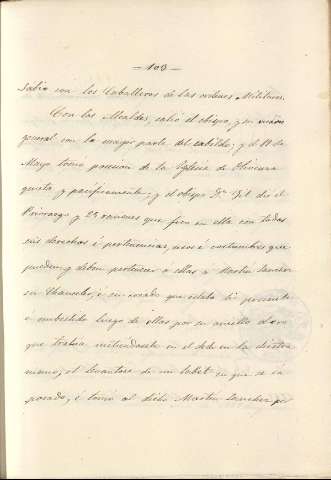 — 103 —
salió con los Caballeros de las ordenes Militares.
Con los Alcaldes, salió el obispo, y su vicario
general con la mayor parte del cabildo; y el 11 de
Mayo tomó posesion de la Iglesia de Olivenza
quieta y pacificamente; y el obispo Dn. Gil dió el
y 25 raciones que son en ella con todos
sus derechos é pertinencias, usos é costumbres que
pueden y deben pertenecer á ellas á Martin Sanchez
su é su criado que estaba hi presente
é embestido luego de ellas por su anillo de oro
que trahia en el dedo en la diestra
mano, el levantose de un en que se
posado, é tomó al dicho Martin Sanchez por